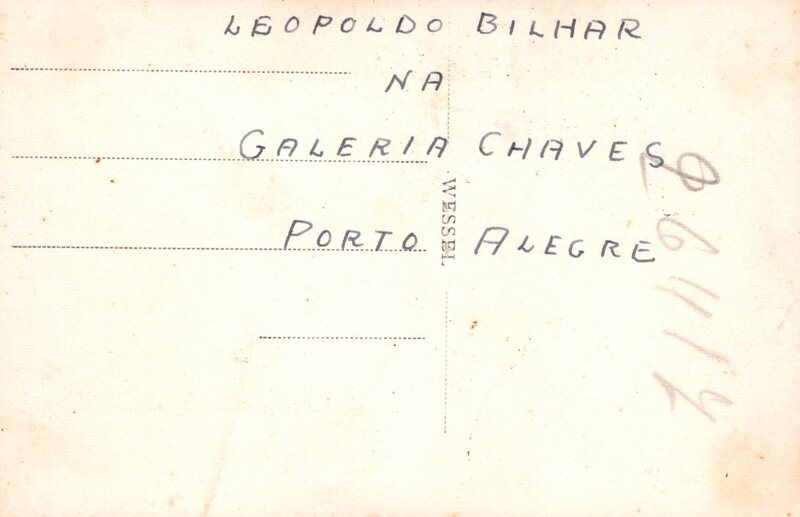 LEOPOLDO BILHAR
NA
GALERIA CHAVES
PORTO ALEGRE
WESSEL